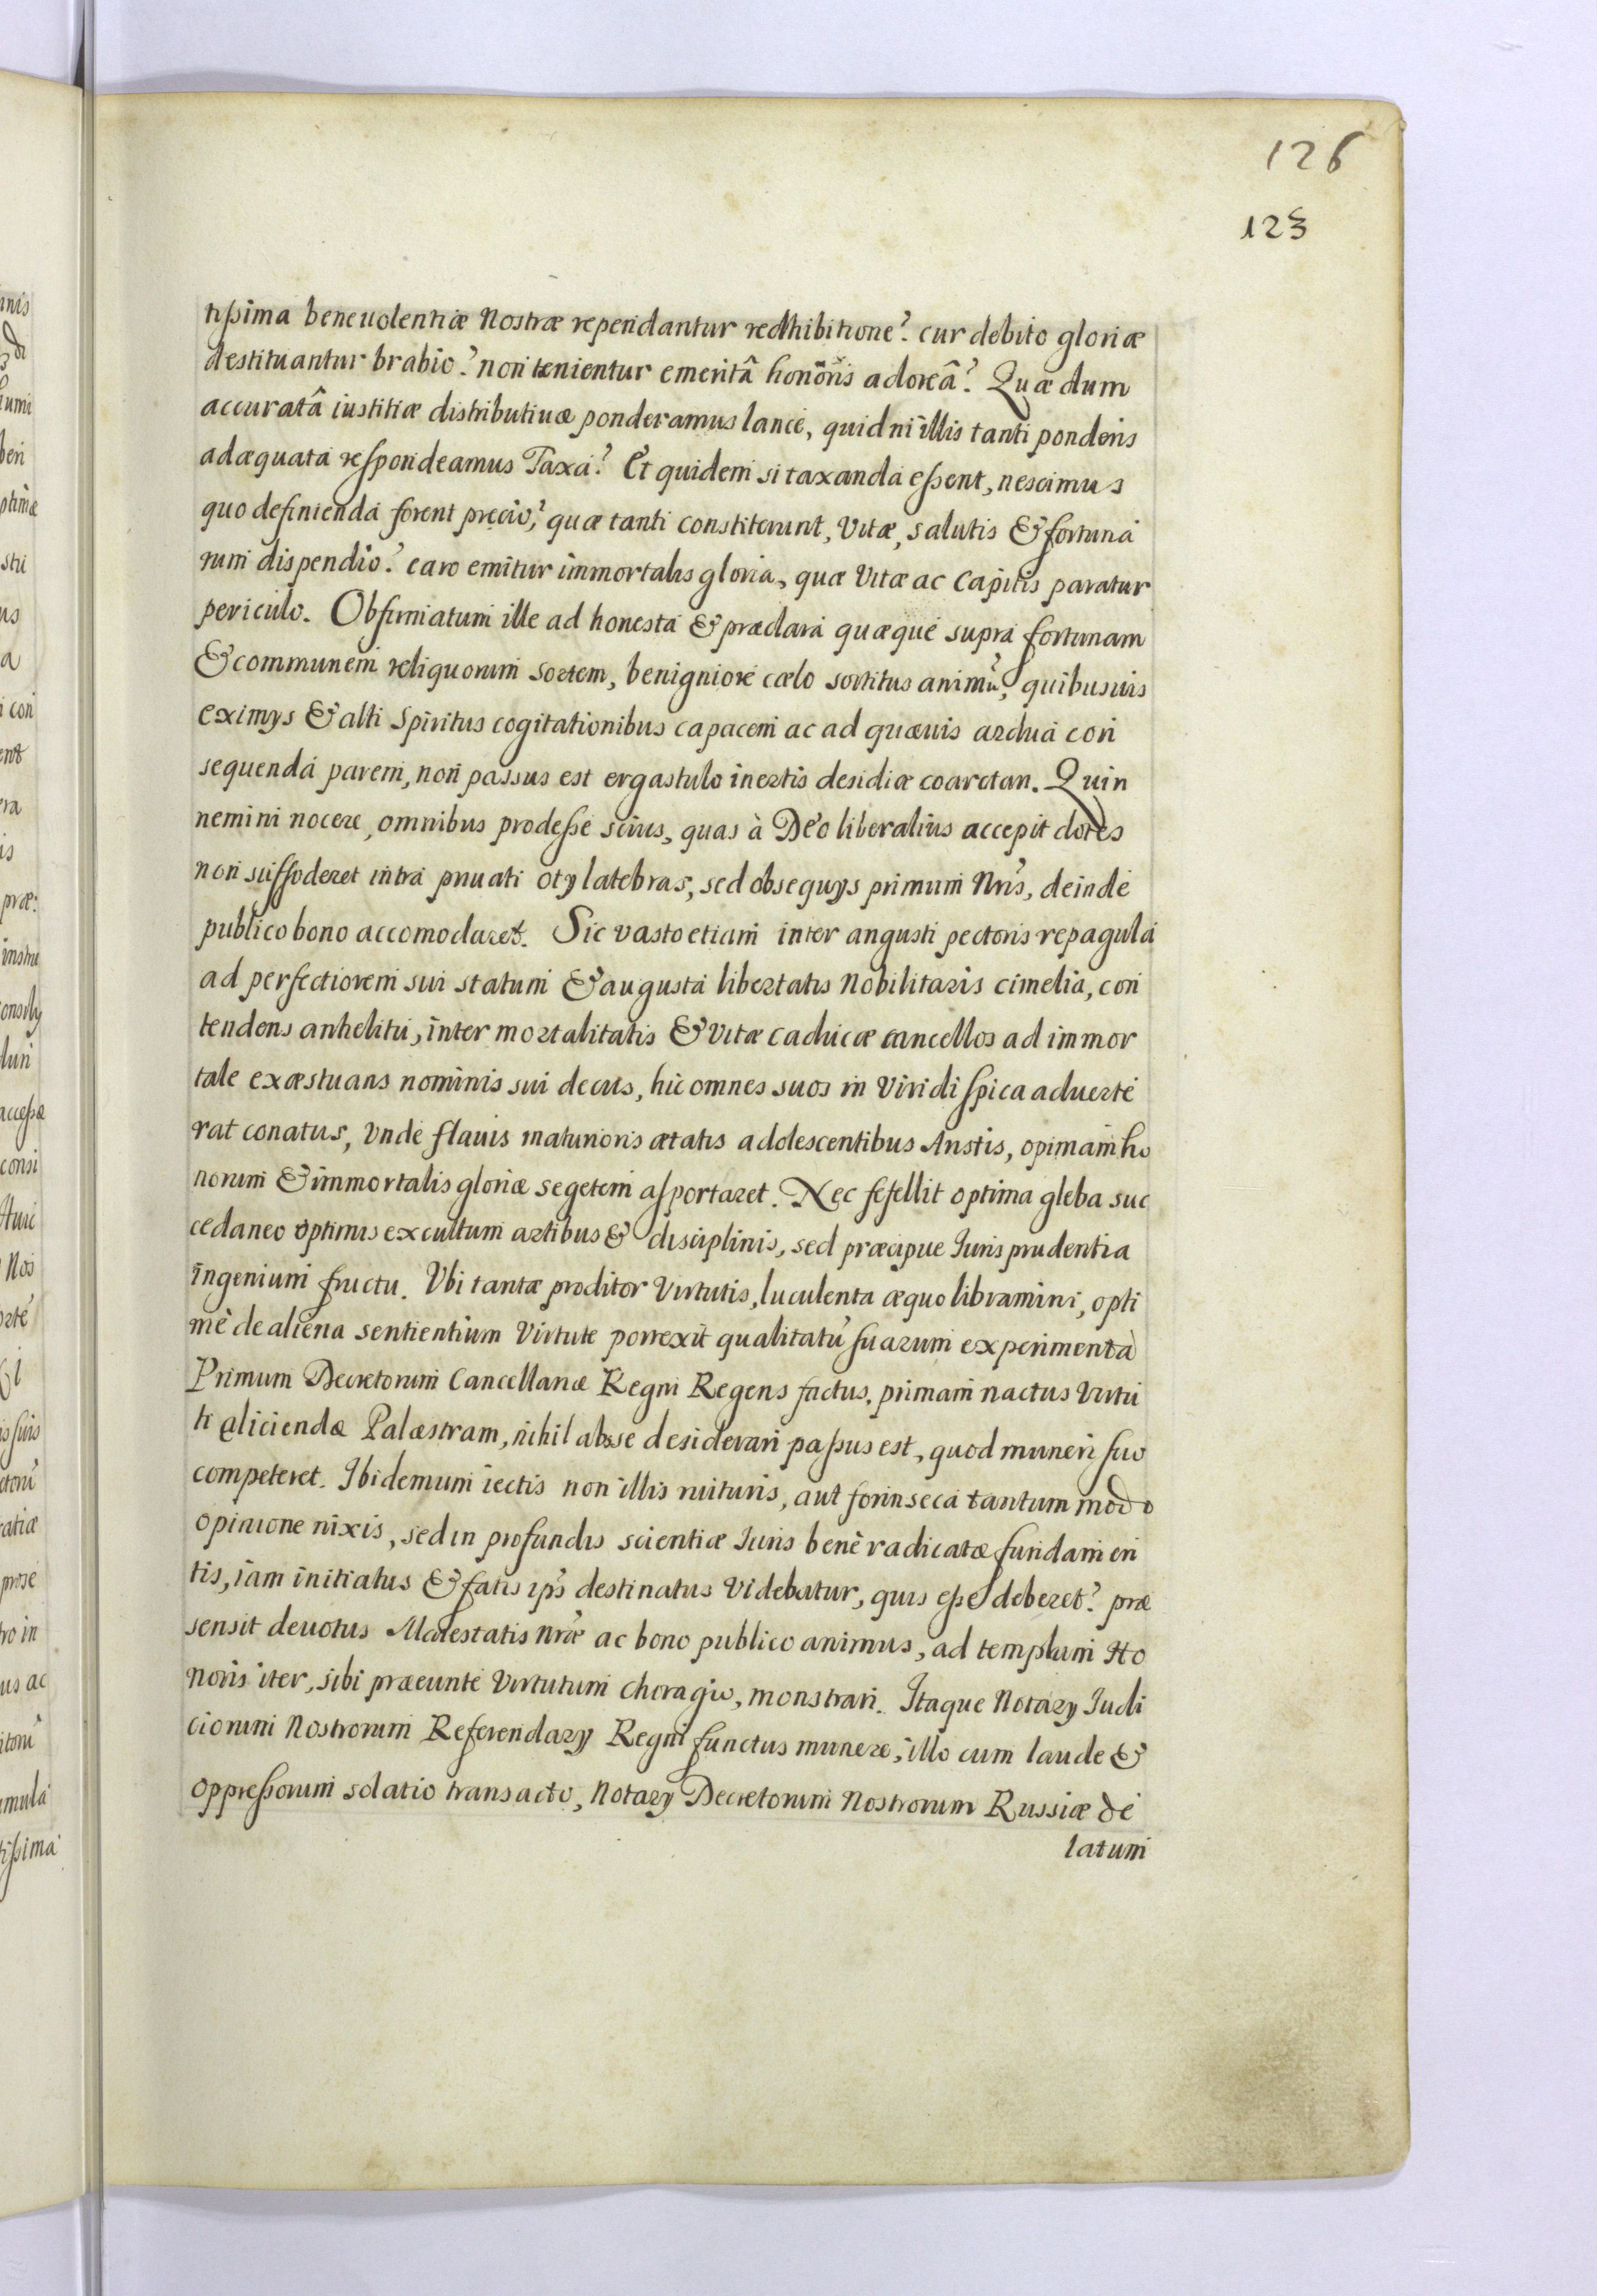 126
123
tißima beneuolentiæ Nostræ rependantur redhibitione? cur debito gloriæ
destituantur brabio? non tenientur emeritâ honoris adoreâ? Quæ dum
accuratâ iustitiæ distributiuæ ponderamus lance, quid ni illis tanti ponderis
adæquata respondeamus Taxa? Et quidem si taxanda eßent, nescimus
quo definienda forent precio, quæ tanti constiterunt, Vitæ, salutis & fortuna
rum dispendio? caro emitur immortalis gloria, quæ Vitæ ac Capitis paratur
periculo. Obfirmatum ille ad honesta & præclara quæque supra fortunam
& communem reliquorum sortem, benigniore cælo sortitus animũ, quibusuis
eximys & alti Spiritus cogitationibus capacem ac ad quæuis ardua con
sequenda parem, non passus est ergastulo inertis desidiæ coarctari. Quin
nemini nocere, omnibus prodeße scius, quas à Deo liberalius accepit dotes
non suffoderet intra priuati Oty latebras, sed obsequys primum Nris, deinde
publico bono accomodaret. Sic vasto etiam inter angusti pectoris repagula
ad perfectiorem sui statum & augusta libertatis Nobilitaris cimelia, con
tendens anhelitu, inter mortalitatis & Vitæ caducæ cancellos ad immor
tale exæstuans nominis sui decus, hic omnes suos in Viridi spica aduerte
rat conatus, Vnde flauis maturioris ætatis adolescentibus Aristis, opimam ho
norum & immortalis gloriæ segetem asportaret. Nec fefellit optima gleba suc
cedaneo optimis excultum artibus & disciplinis, sed præcipue Iurisprudentia
ingenium fructu. Vbi tantæ proditor Virtutis, luculenta æquo libramini, opti
mè de aliena sentientium Virtute porrexit qualitatũ suarum experimenta
Primum Decretorum Cancellariæ Regni Regens factus, primam nactus Virtu
ti eliciendæ Palæstram, nihil ab se desiderari paßus est, quod muneri suo
competeret. Ibidemum iectis non illis ruituris, aut forinseca tantum modo
opinione nixis, sed in profundis scientiæ Iuris benè radicatæ fundamen
tis, iam initiatus & fatis ip̃s destinatus Videbatur, quis eße deberet? præ
sensit deuotus Maiestatis Nræ ac bono publico animus, ad templum Ho
noris iter, sibi præeunte Virtutum choragio, monstrari. Itaque Notary Iudi
ciorum Nostrorum Referendary Regni functus munere, illo cum laude &
oppreßorum solatio transacto, Notary Decretorum Nostrorum Russiæ de
latum